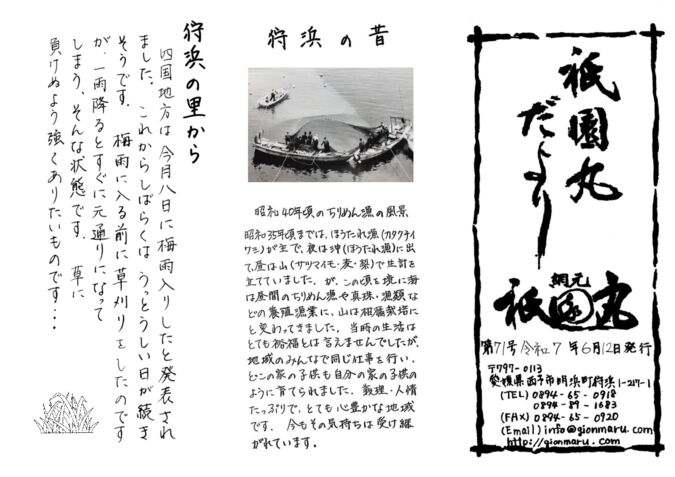 祇園丸
だより
網元
祇園丸
第71号 令和7年6月12日発行
〒797-0113
愛媛県西予市明浜町狩浜1-217-1
(TEL) 0894-65-0918
0894-89-1683
(FAX) 0894-65-0920
(Email) info@gionmaru.com
http://gionmaru.com
狩浜の昔
昭和40年頃のちりめん漁の風景
昭和35年頃までは、ほうたれ漁(カタクチイ
ワシ)が主で、夜は沖(ほうたれ漁)に出
て、昼は山(サツマイモ・麦・桑)で生計を
立てていました。が、この頃を境に海
は昼間のちりめん漁や真珠・漁類な
どの養殖漁業に、山は柑橘栽培に
と変わってきました。当時の生活は
とても裕福とは言えませんでしたが、
地域のみんなで同じ仕事を行い、
どこの家の子供も自分の家の子供の
ように育てられました。義理・人情
たっぷりで、とても心豊かな地域
です。今もその気持ちは受け継
がれています。
狩浜の里から
四国地方は今月八日に梅雨入りしたと発表され
ました。これからしばらくはうっとうしい日が続き
そうです。梅雨に入る前に草刈りをしたのです
が、一雨降るとすぐに元通りになって
しまう、そんな状態です。草に
負けぬよう強くありたいものです・・・